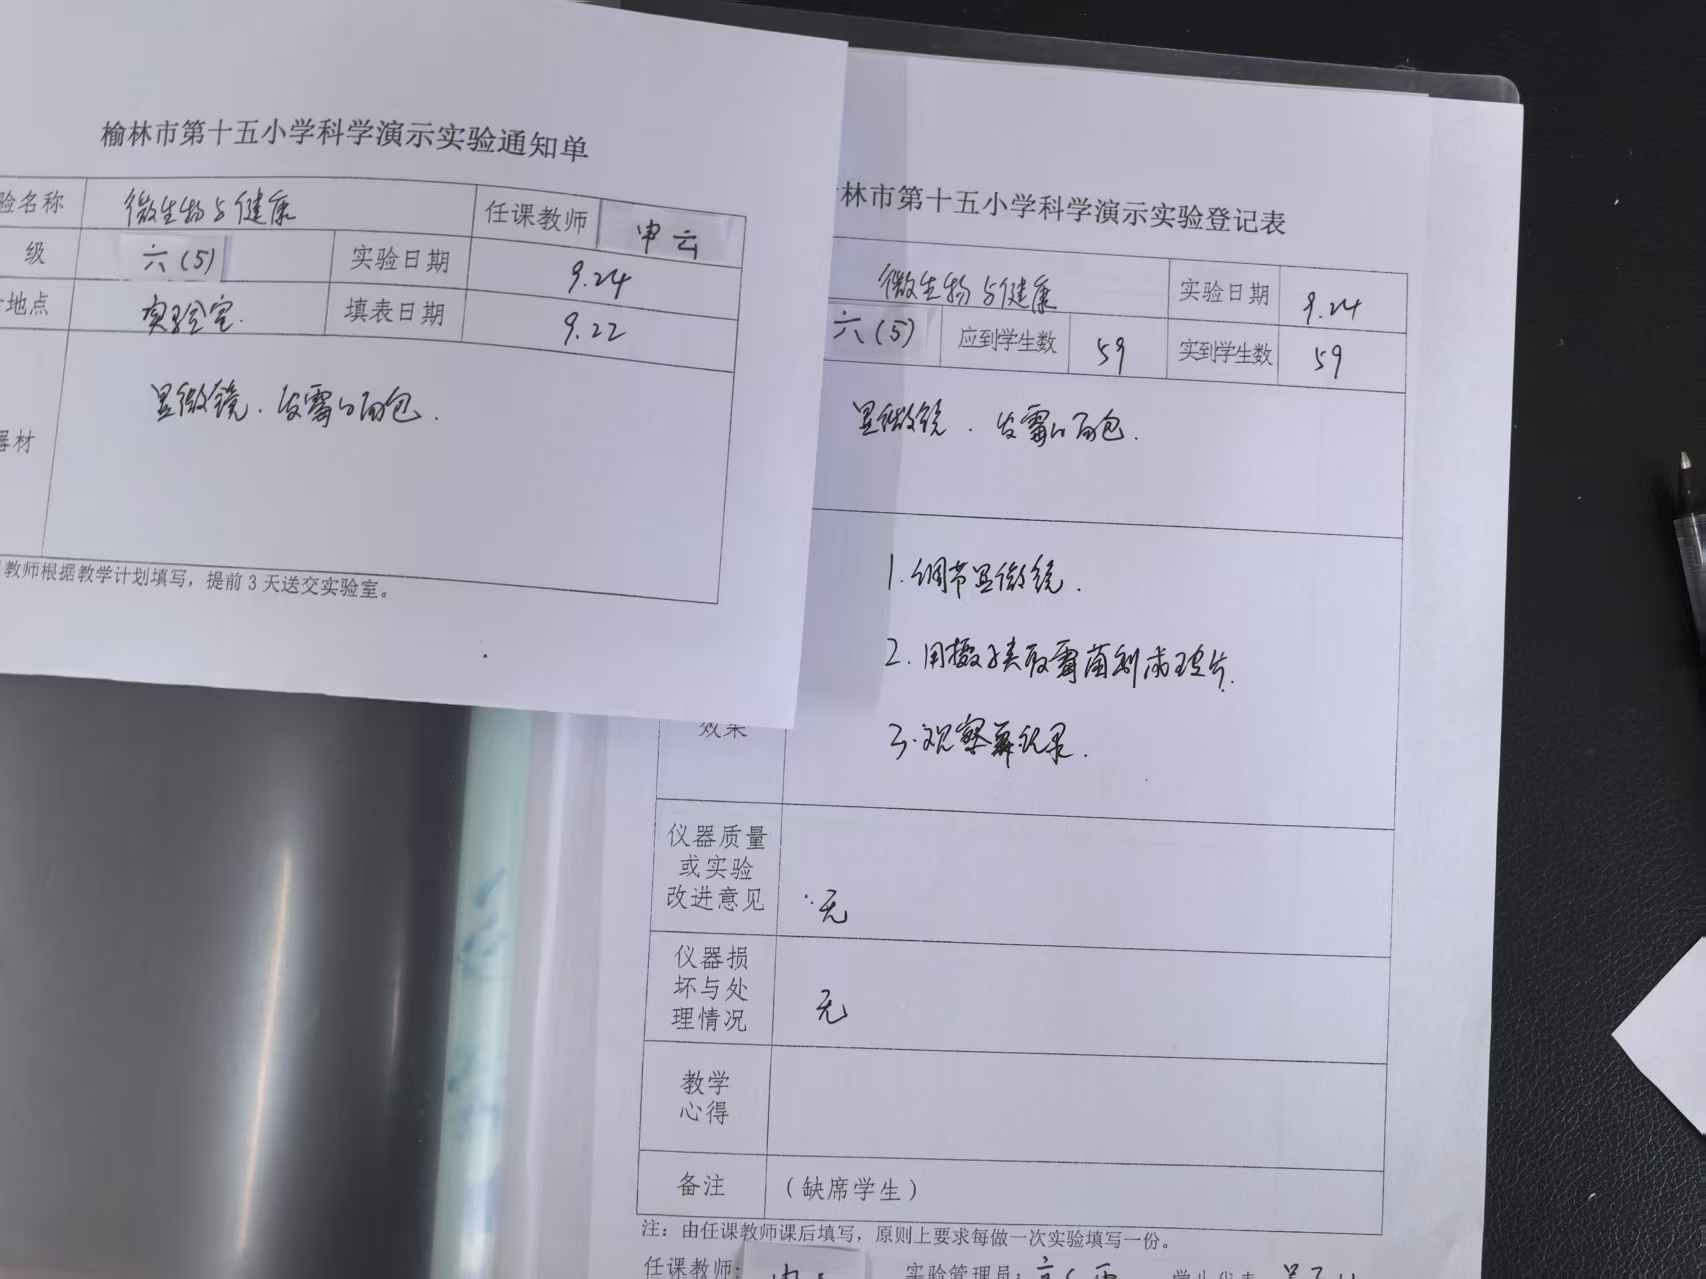 榆林市第十五小学科学演示实验通知单
验名称 微生物与健康 任课教师 申云
级 六(5) 实验日期 9.24
地点 实验室. 填表日期 9.22
器材 显微镜.发霉的面包.
教师根据教学计划填写，提前3天送交实验室。
林市第十五小学科学演示实验登记表
微生物与健康 实验日期 9.24
六(5) 应到学生数 59 实到学生数 59
显微镜.发霉的面包.
1.调节显微镜.
2.用镊子夹取霉菌制成玻片.
3.观察并记录.
效果
仪器质量
或实验
改进意见
无
仪器损
坏与处
理情况
无
教学
心得
备注 (缺席学生)
注：由任课教师课后填写，原则上要求每做一次实验填写一份。
任课教师: 实验管理员: